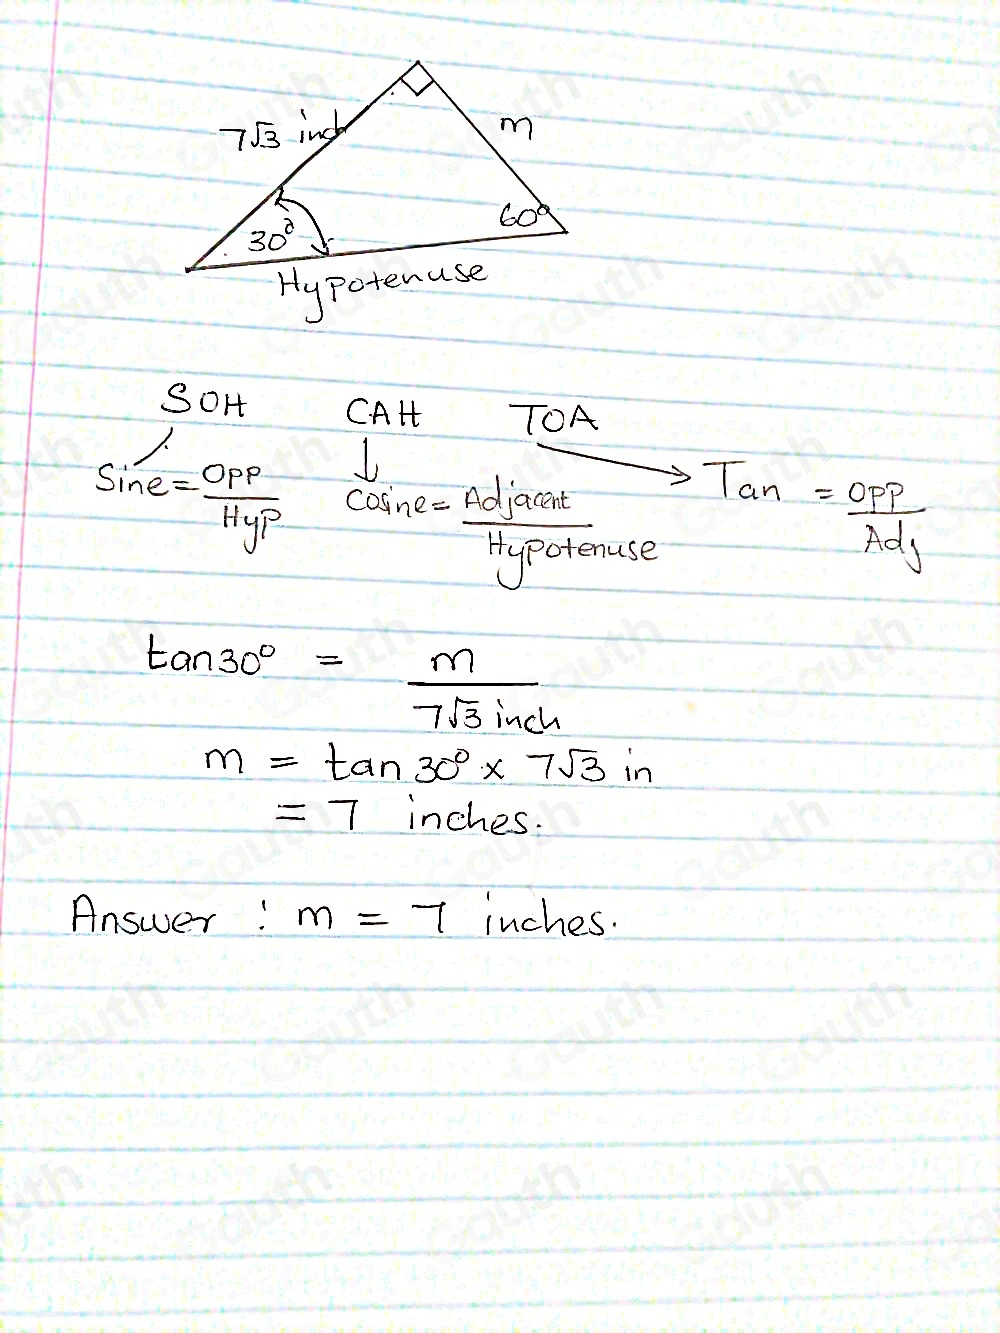 7√3 inch
m
30°
60°
Hypotenuse
SOH CAH TOA
Sine = Opp/Hyp Cosine = Adjacent/Hypotenuse Tan = Opp/Adj
tan30° = m/7√3 inch
m = tan 30° × 7√3 in
= 7 inches.
Answer : m = 7 inches.
Gauth